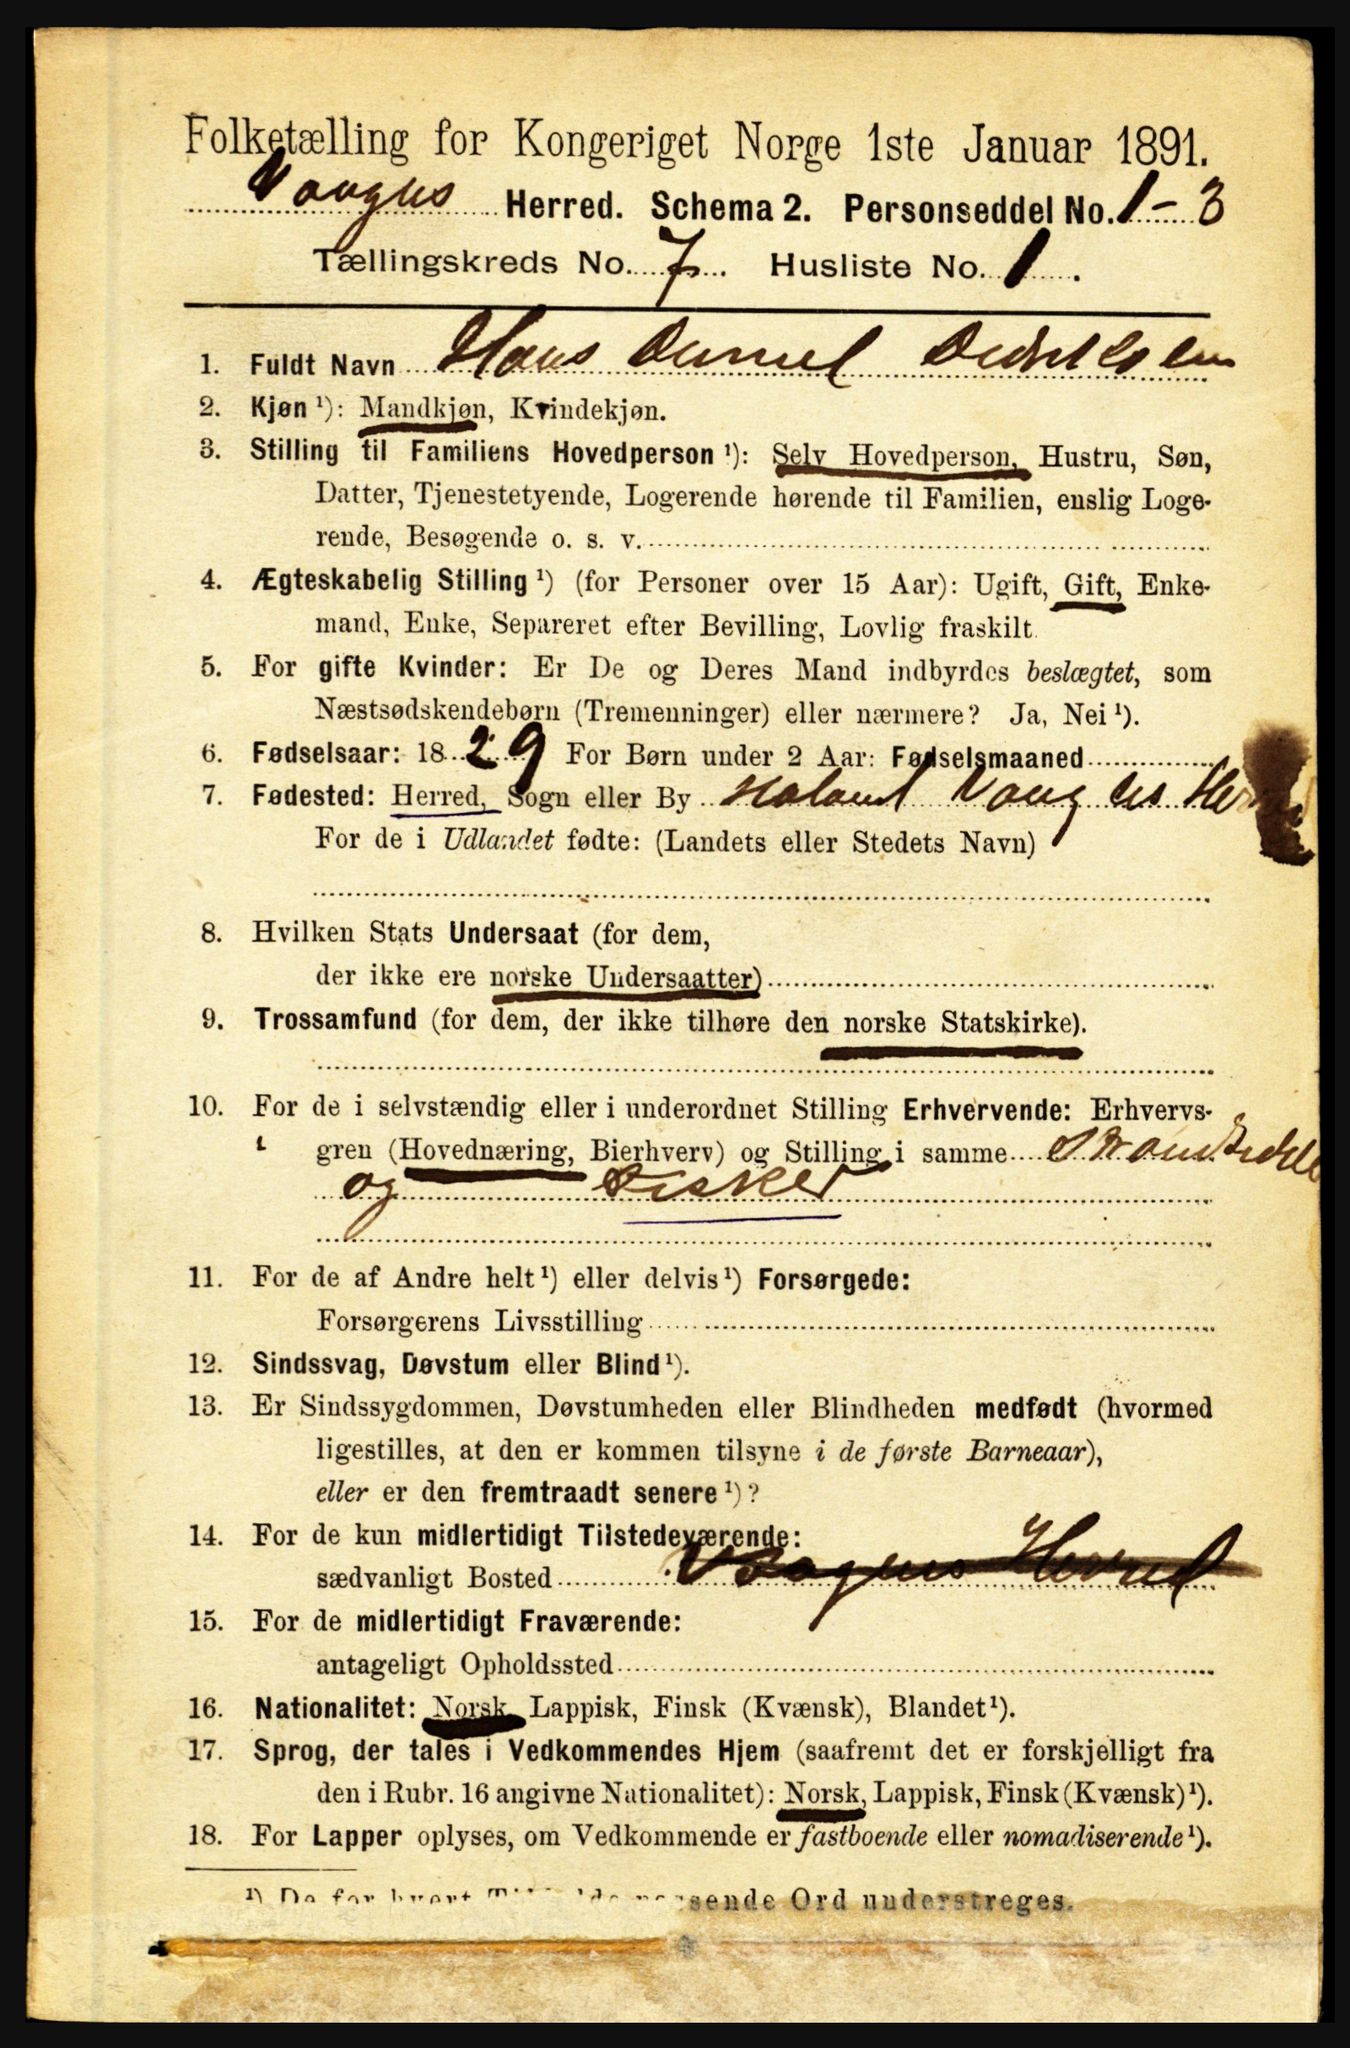 Folketælling for Kongeriget Norge 1ste Januar 1891.
Vaagns Herred. Schema 2. Personseddel No. 1 - 3
Tællingskreds No. 7. Husliste No. 1.
1. Fuldt Navn Hans Didrikssen
2. Kjøn ¹): Mandkjøn, Kvindekjøn.
3. Stilling til Familiens Hovedperson ¹): Selv Hovedperson, Hustru, Søn,
Datter, Tjenestetyende, Logerende hørende til Familien, enslig Loge-
rende, Besøgende o. s. v.
4. Ægteskabelig Stilling ¹) (for Personer over 15 Aar): Ugift, Gift, Enke-
mand, Enke, Separeret efter Bevilling, Lovlig fraskilt.
5. For gifte Kvinder: Er De og Deres Mand indbyrdes beslægtet, som
Næstsødskendebørn (Tremenninger) eller nærmere? Ja, Nei ¹).
6. Fødselsaar: 1829 For Børn under 2 Aar: Fødselsmaaned
7. Fødested: Herred, Sogn eller By Holand Vaagns Herred
For de i Udlandet fødte: (Landets eller Stedets Navn)
8. Hvilken Stats Undersaat (for dem,
der ikke ere norske Undersaatter)
9. Trossamfund (for dem, der ikke tilhøre den norske Statskirke).
10. For de i selvstændig eller i underordnet Stilling Erhvervende: Erhvervs-
gren (Hovednæring, Bierhverv) og Stilling i samme Strandsidder
og Fisker
11. For de af Andre helt ¹) eller delvis ¹) Forsørgede:
Forsørgerens Livsstilling
12. Sindssvag, Døvstum eller Blind ¹).
13. Er Sindssygdommen, Døvstumheden eller Blindheden medfødt (hvormed
ligestilles, at den er kommen tilsyne i de første Barneaar),
eller er den fremtraadt senere ¹)?
14. For de kun midlertidigt Tilstedeværende:
sædvanligt Bosted Vaagens Herred
15. For de midlertidigt Fraværende:
antageligt Opholdssted
16. Nationalitet: Norsk, Lappisk, Finsk (Kvænsk), Blandet ¹).
17. Sprog, der tales i Vedkommendes Hjem (saafremt det er forskjelligt fra
den i Rubr. 16 angivne Nationalitet): Norsk, Lappisk, Finsk (Kvænsk) ¹).
18. For Lapper oplyses, om Vedkommende er fastboende eller nomadiserende ¹).
¹) De for hvert passende Ord understreges.